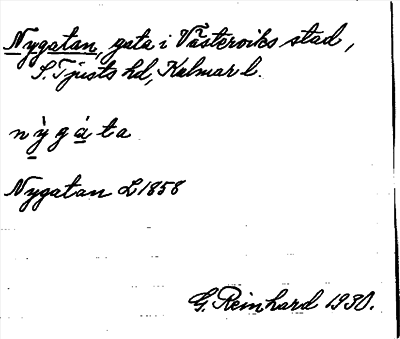 Nygatan, gata i Västerviks stad,
S. Tjusts hd, Kalmar l.
nỳgáta
Nygatan L 1858
G. Reinhard 1930.